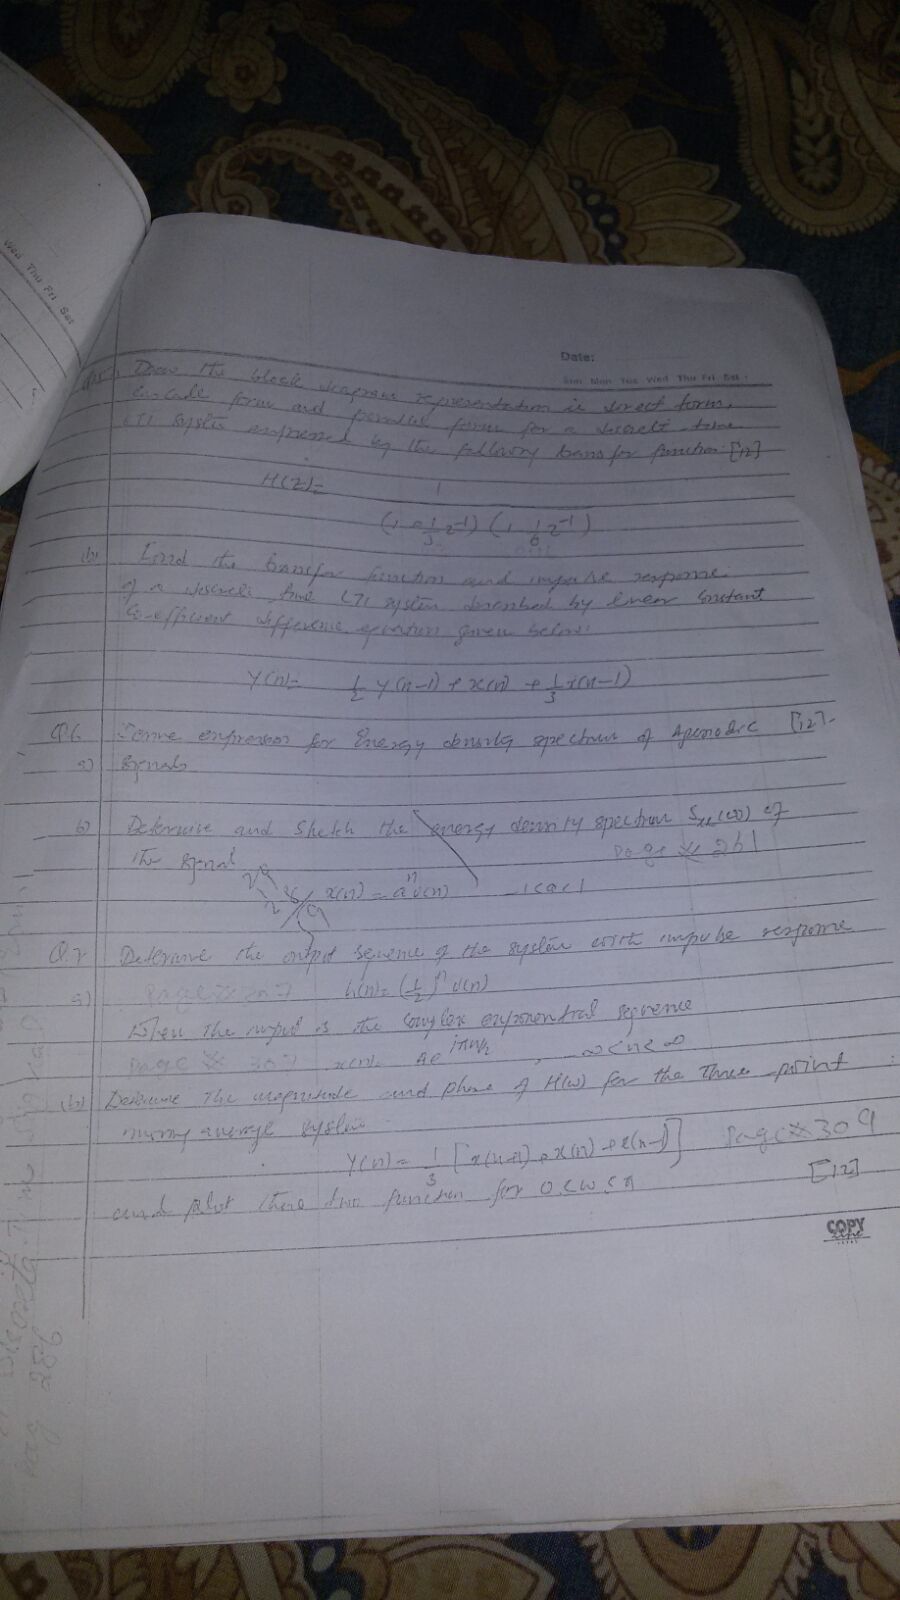 Wed Thu Fri Sat
Date:
Sun Mon Tue Wed Thu Fri Sat
Draw the block diagram representation in direct form,
cascade form and parallel form for a discrete-time
LTI system expressed by the following transfer function: [12]
H(z)= 1
(1 1/3 z⁻¹) (1 1/6 z⁻¹)
(b) Find the transfer function and impulse response
of a discrete time LTI system described by linear constant
Co-efficient difference equation given below:
Y(n)= 1/2 y(n-1) + x(n) + 1/3 x(n-1)
Q.6 expression for Energy density spectrum of Aperiodic [12]
a) signals
b) Determine and sketch the energy density spectrum Sxx(ω) of
the signal page * 261
x(n) = aⁿu(n) -1<a<1
Q.7 Determine the output sequence of the system with impulse response
a) Page * 307 h(n)= (1/2)ⁿ u(n)
When the input is the complex exponential sequence
page * 307 x(n)= Ae^jπn/2 , -∞<n<∞
(b) Determine the magnitude and phase of H(ω) for the Three-point
moving average system
Y(n) = 1/3 [x(n+1) + x(n) + x(n-1)] Page * 309
and plot these two function for 0<ω<π [12]
COPY
Discrete-Time
pag 256